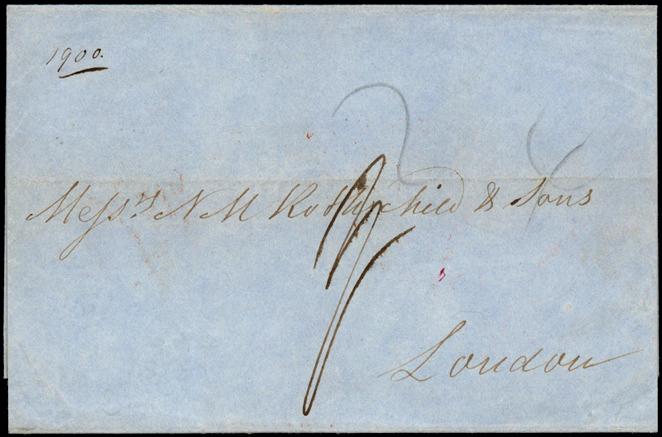 1900.
2
Mess.rs N M Rothschild & Sons
London